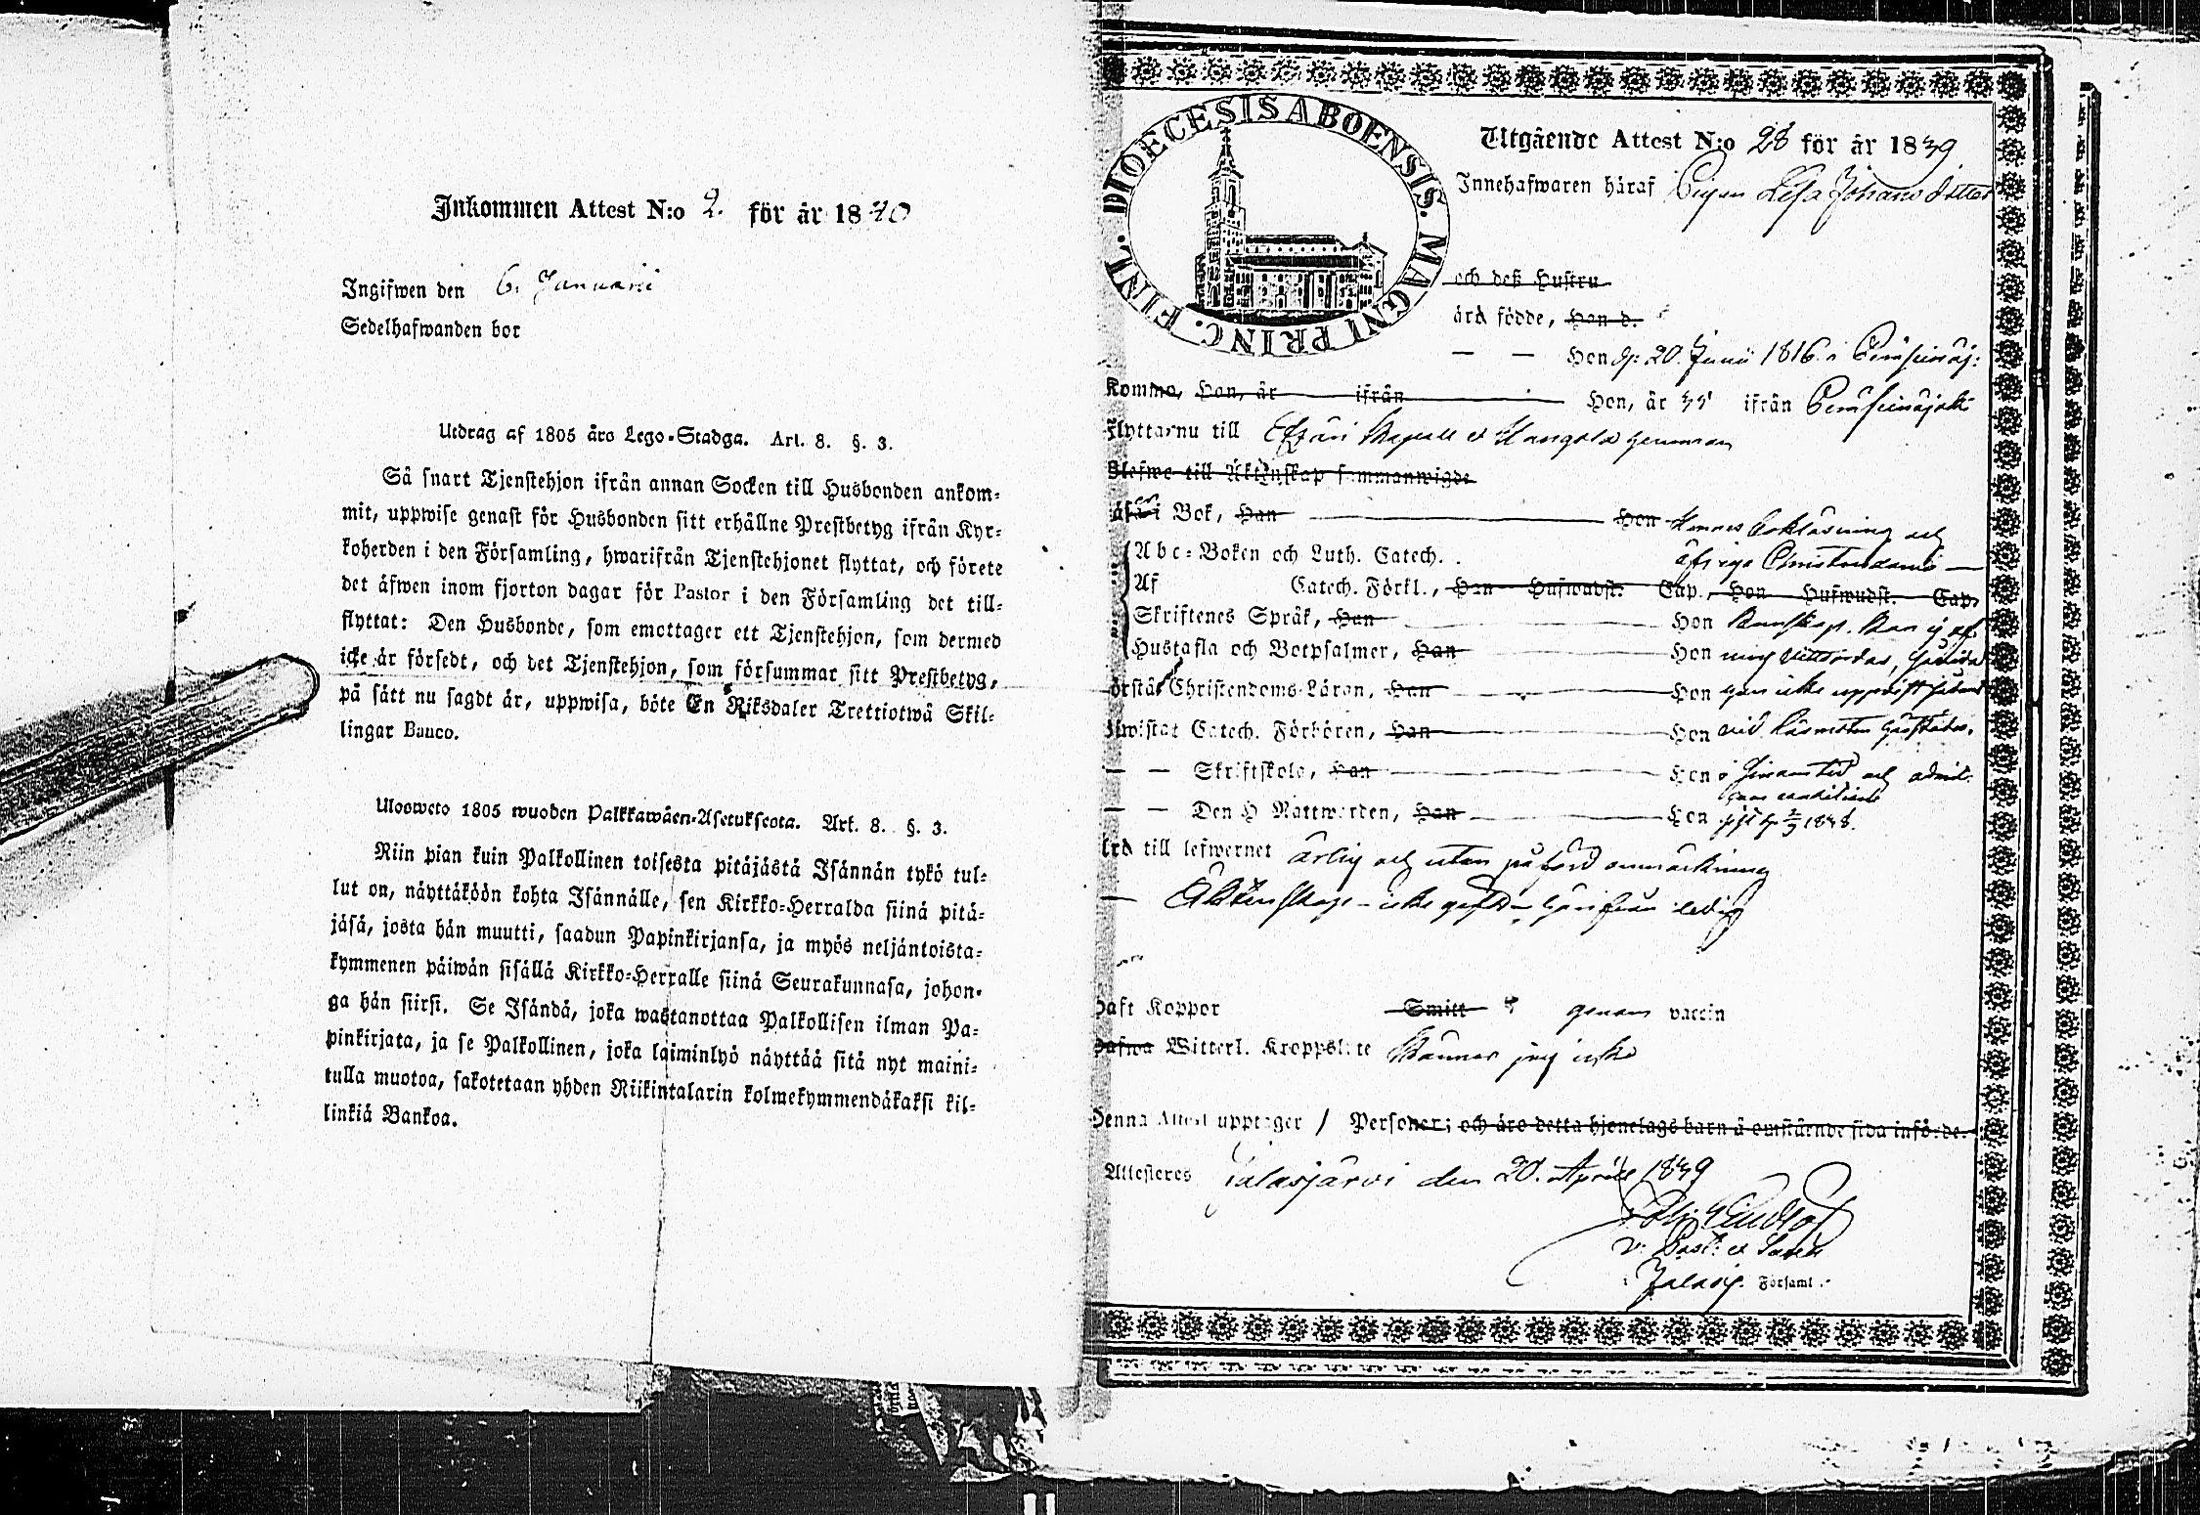 Inkommen Attest N:o 2. för år 1840
Ingifwen den 6. Januarii
Sedelhafwanden bor
Utdrag af 1805 års Lego-Stadga. Art. 8. §. 3.
Så snart Tjenstehjon ifrån annan Socken till Husbonden ankom-
mit, uppwise genast för Husbonden sitt erhållne Prestbetyg ifrån Kyr-
koherden i den Församling, hwarifrån Tjenstehjonet flyttat, och förete
det äfwen inom fjorton dagar för Pastor i den Församling det till-
flyttat: Den Husbonde, som emottager ett Tjenstehjon, som dermed
icke är försedt, och det Tjenstehjon, som försummar sitt Prestbetyg,
på sätt nu sagdt är, uppwisa, böte En Riksdaler Trettiotwå Skil-
lingar Banco.
Ulosweto 1805 wuoden Palkkawäen-Asetuksesta. Art. 8. §. 3.
Niin pian kuin Palkollinen toisesta pitäjästä Isännän tykö tul-
lut on, näyttäköön kohta Isännälle, sen Kirkko-Herralda siinä pitä-
jäsä, josta hän muutti, saadun Papinkirjansa, ja myös neljäntoista-
kymmenen päiwän sisällä Kirkko-Herralle siinä Seurakunnasa, johon-
ga hän siirsi. Se Isändä, joka wastanottaa Palkollisen ilman Pa-
pinkirjata, ja se Palkollinen, joka laiminlyö näyttää sitä nyt maini-
tulla muotoa, sakotetaan yhden Riikintalarin kolmekymmendäkaksi kil-
linkiä Bankoa.
DIOECESIS ABOENSIS. MAGNI PRINC. FINL.
Utgående Attest N:o 28 för år 1839
Innehafwaren häraf Pigan Lisa Johans dotter
och deß Hustru
ärå födde, Han d.
— — Hon d. 20. Junii 1816. i
Komma, Han, år ifrån Hon, år 35 ifrån
Flyttar nu till Etzäri Kapell
Blefwe till Äktenskap sammanwigde
i Bok, Han Hon Hennes bokläsning och
Abc-Boken och Luth. Catech. öfriga Christendoms —
Af Catech. Förkl., Han Hufwudst. Cap., Hon Hufwudst. Cap.
Skriftenes Språk, Han Hon Kunskap. Kan ej af
Hustafla och Botpsalmer, Han Hon mig
Förstår Christendoms-Läran, Han Hon icke
Biwistat Catech. Förhören, Han Hon vid
— — Skriftskola, Han Hon
— — Den H Nattwarden, Han Hon 1838.
till lefwernet ärlig och utan anmärkning
— Äktenskap icke ledig
Haft Koppor Smitt genom vaccin
Hafwa Witterl. Kroppslyte känner jag icke
Denna Attest upptager 1 Personer; och äro detta hjonelags barn å omstående sida införde.
Attesteras Jalasjärvi den 20. April 1839
i Jalasj. Församl.